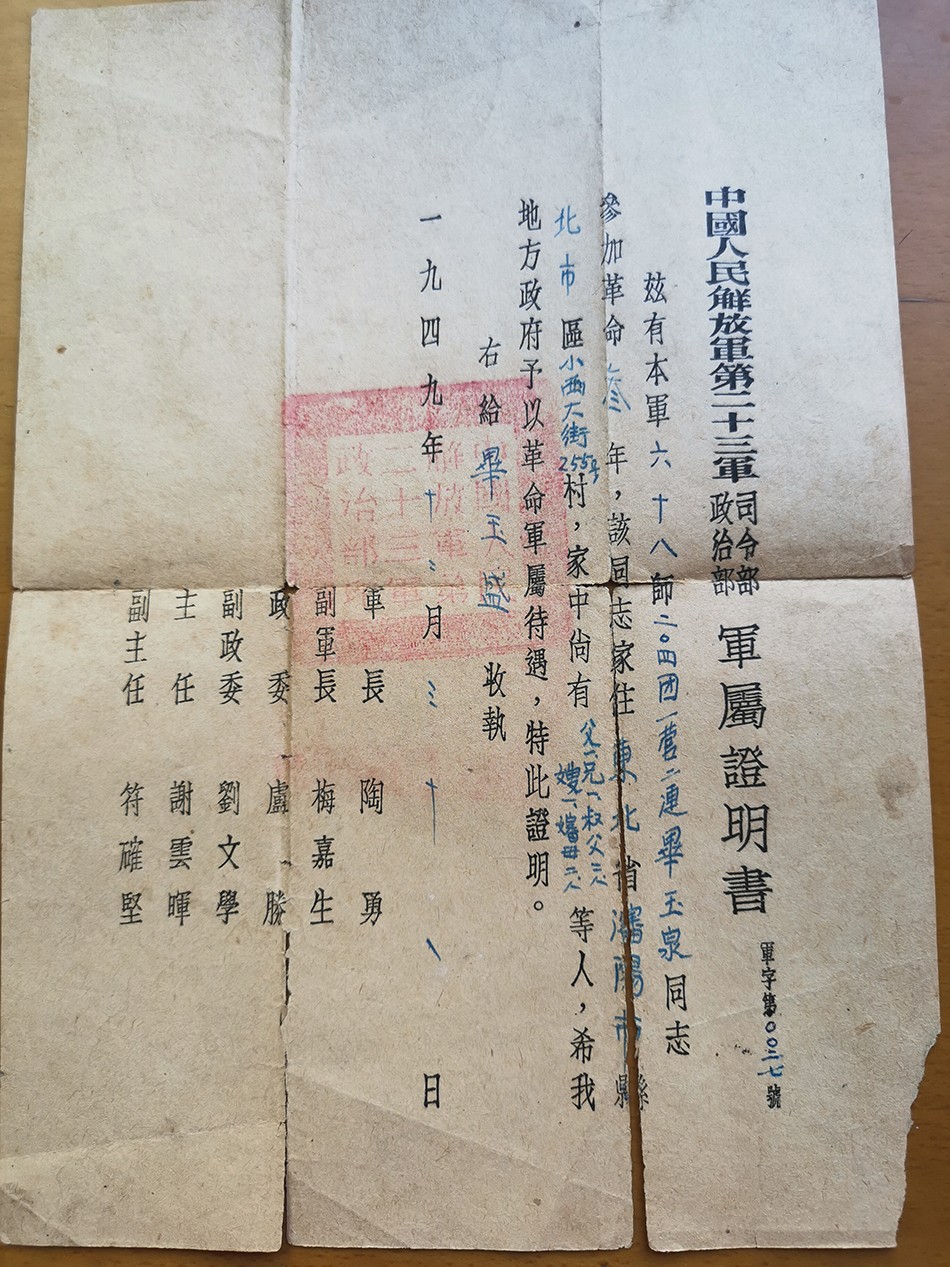 中國人民解放軍第二十三軍司令部政治部 軍屬證明書
軍字第00二七號
玆有本軍六十八師二〇四团一营二連畢玉泉同志
參加革命叁年，該同志家住東北省瀋陽市縣
北市區小西大街255号村，家中尙有父一兄一叔父二人嫂一嬸母二人等人，希我
地方政府予以革命軍屬待遇，特此證明。
右給畢玉盛收執
一九四九年十二月三十一日
軍長 陶勇
副軍長 梅嘉生
政委 盧勝
副政委 劉文學
主任 謝雲暉
副主任 符確堅